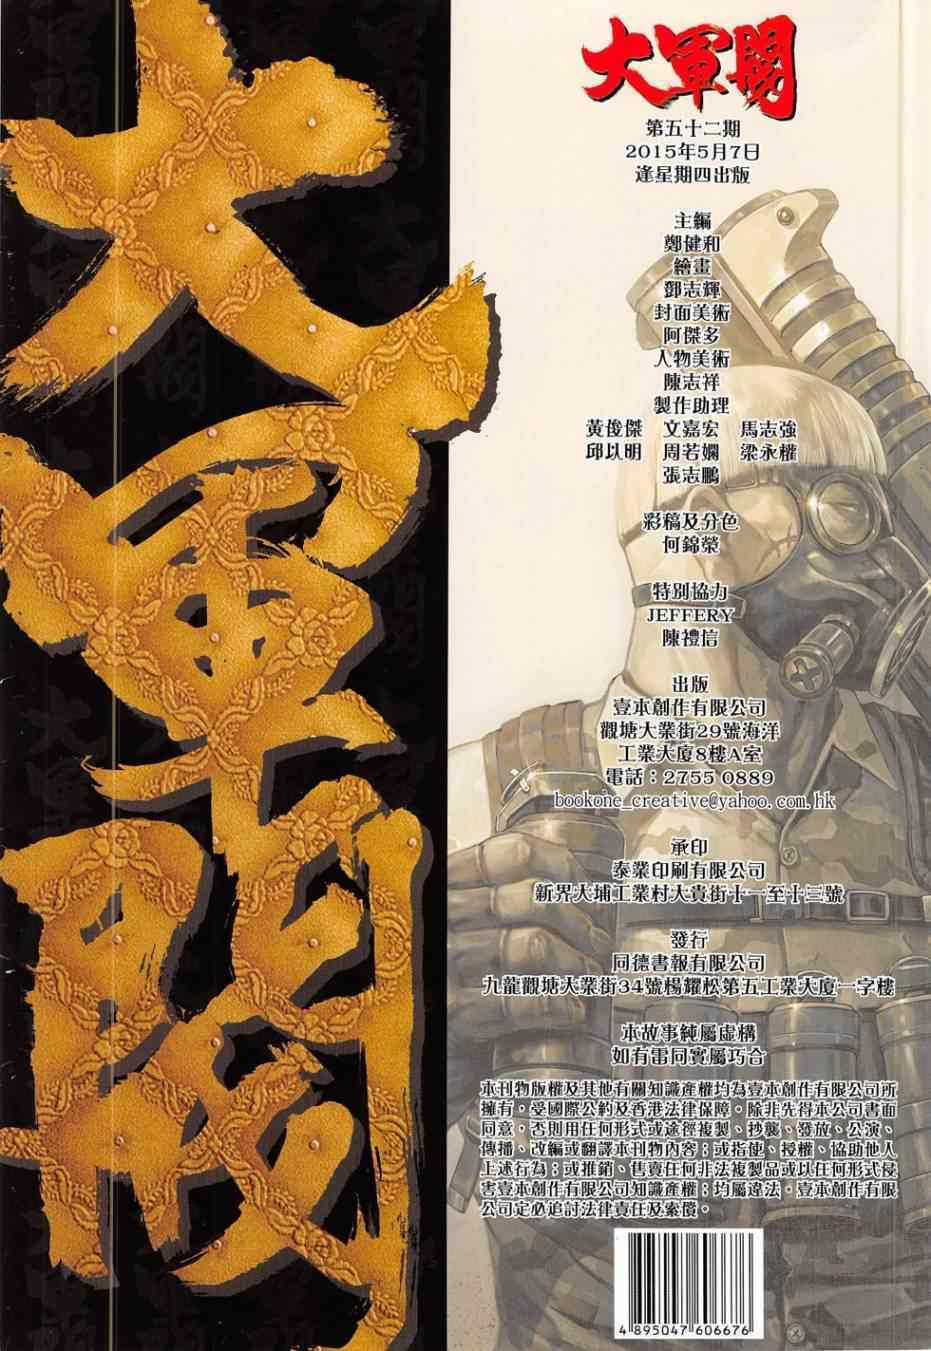 大軍閥
大軍閥
第五十二期
2015年5月7日
逢星期四出版
主編
鄭健和
繪畫
鄧志輝
封面美術
阿傑多
人物美術
陳志祥
製作助理
黃俊傑 文嘉宏 馬志強
邱以明 周若斕 梁永權
張志鵬
彩稿及分色
何錦榮
特別協力
JEFFERY
陳禮信
出版
壹本創作有限公司
觀塘大業街29號海洋
工業大廈8樓A室
電話：2755 0889
bookone_creative@yahoo.com.hk
承印
泰業印刷有限公司
新界大埔工業村大貴街十一至十三號
發行
同德書報有限公司
九龍觀塘大業街34號楊耀松第五工業大廈一字樓
本故事純屬虛構
如有雷同實屬巧合
本刊物版權及其他有關知識產權均為壹本創作有限公司所
擁有，受國際公約及香港法律保障。除非先得本公司書面
同意，否則用任何形式或途徑複製、抄襲、發放、公演、
傳播、改編或翻譯本刊物內容；或指使、授權、協助他人
上述行為；或推銷、售賣任何非法複製品或以任何形式侵
害壹本創作有限公司知識產權；均屬違法。壹本創作有限
公司定必追討法律責任及索償。
4 895047 606676